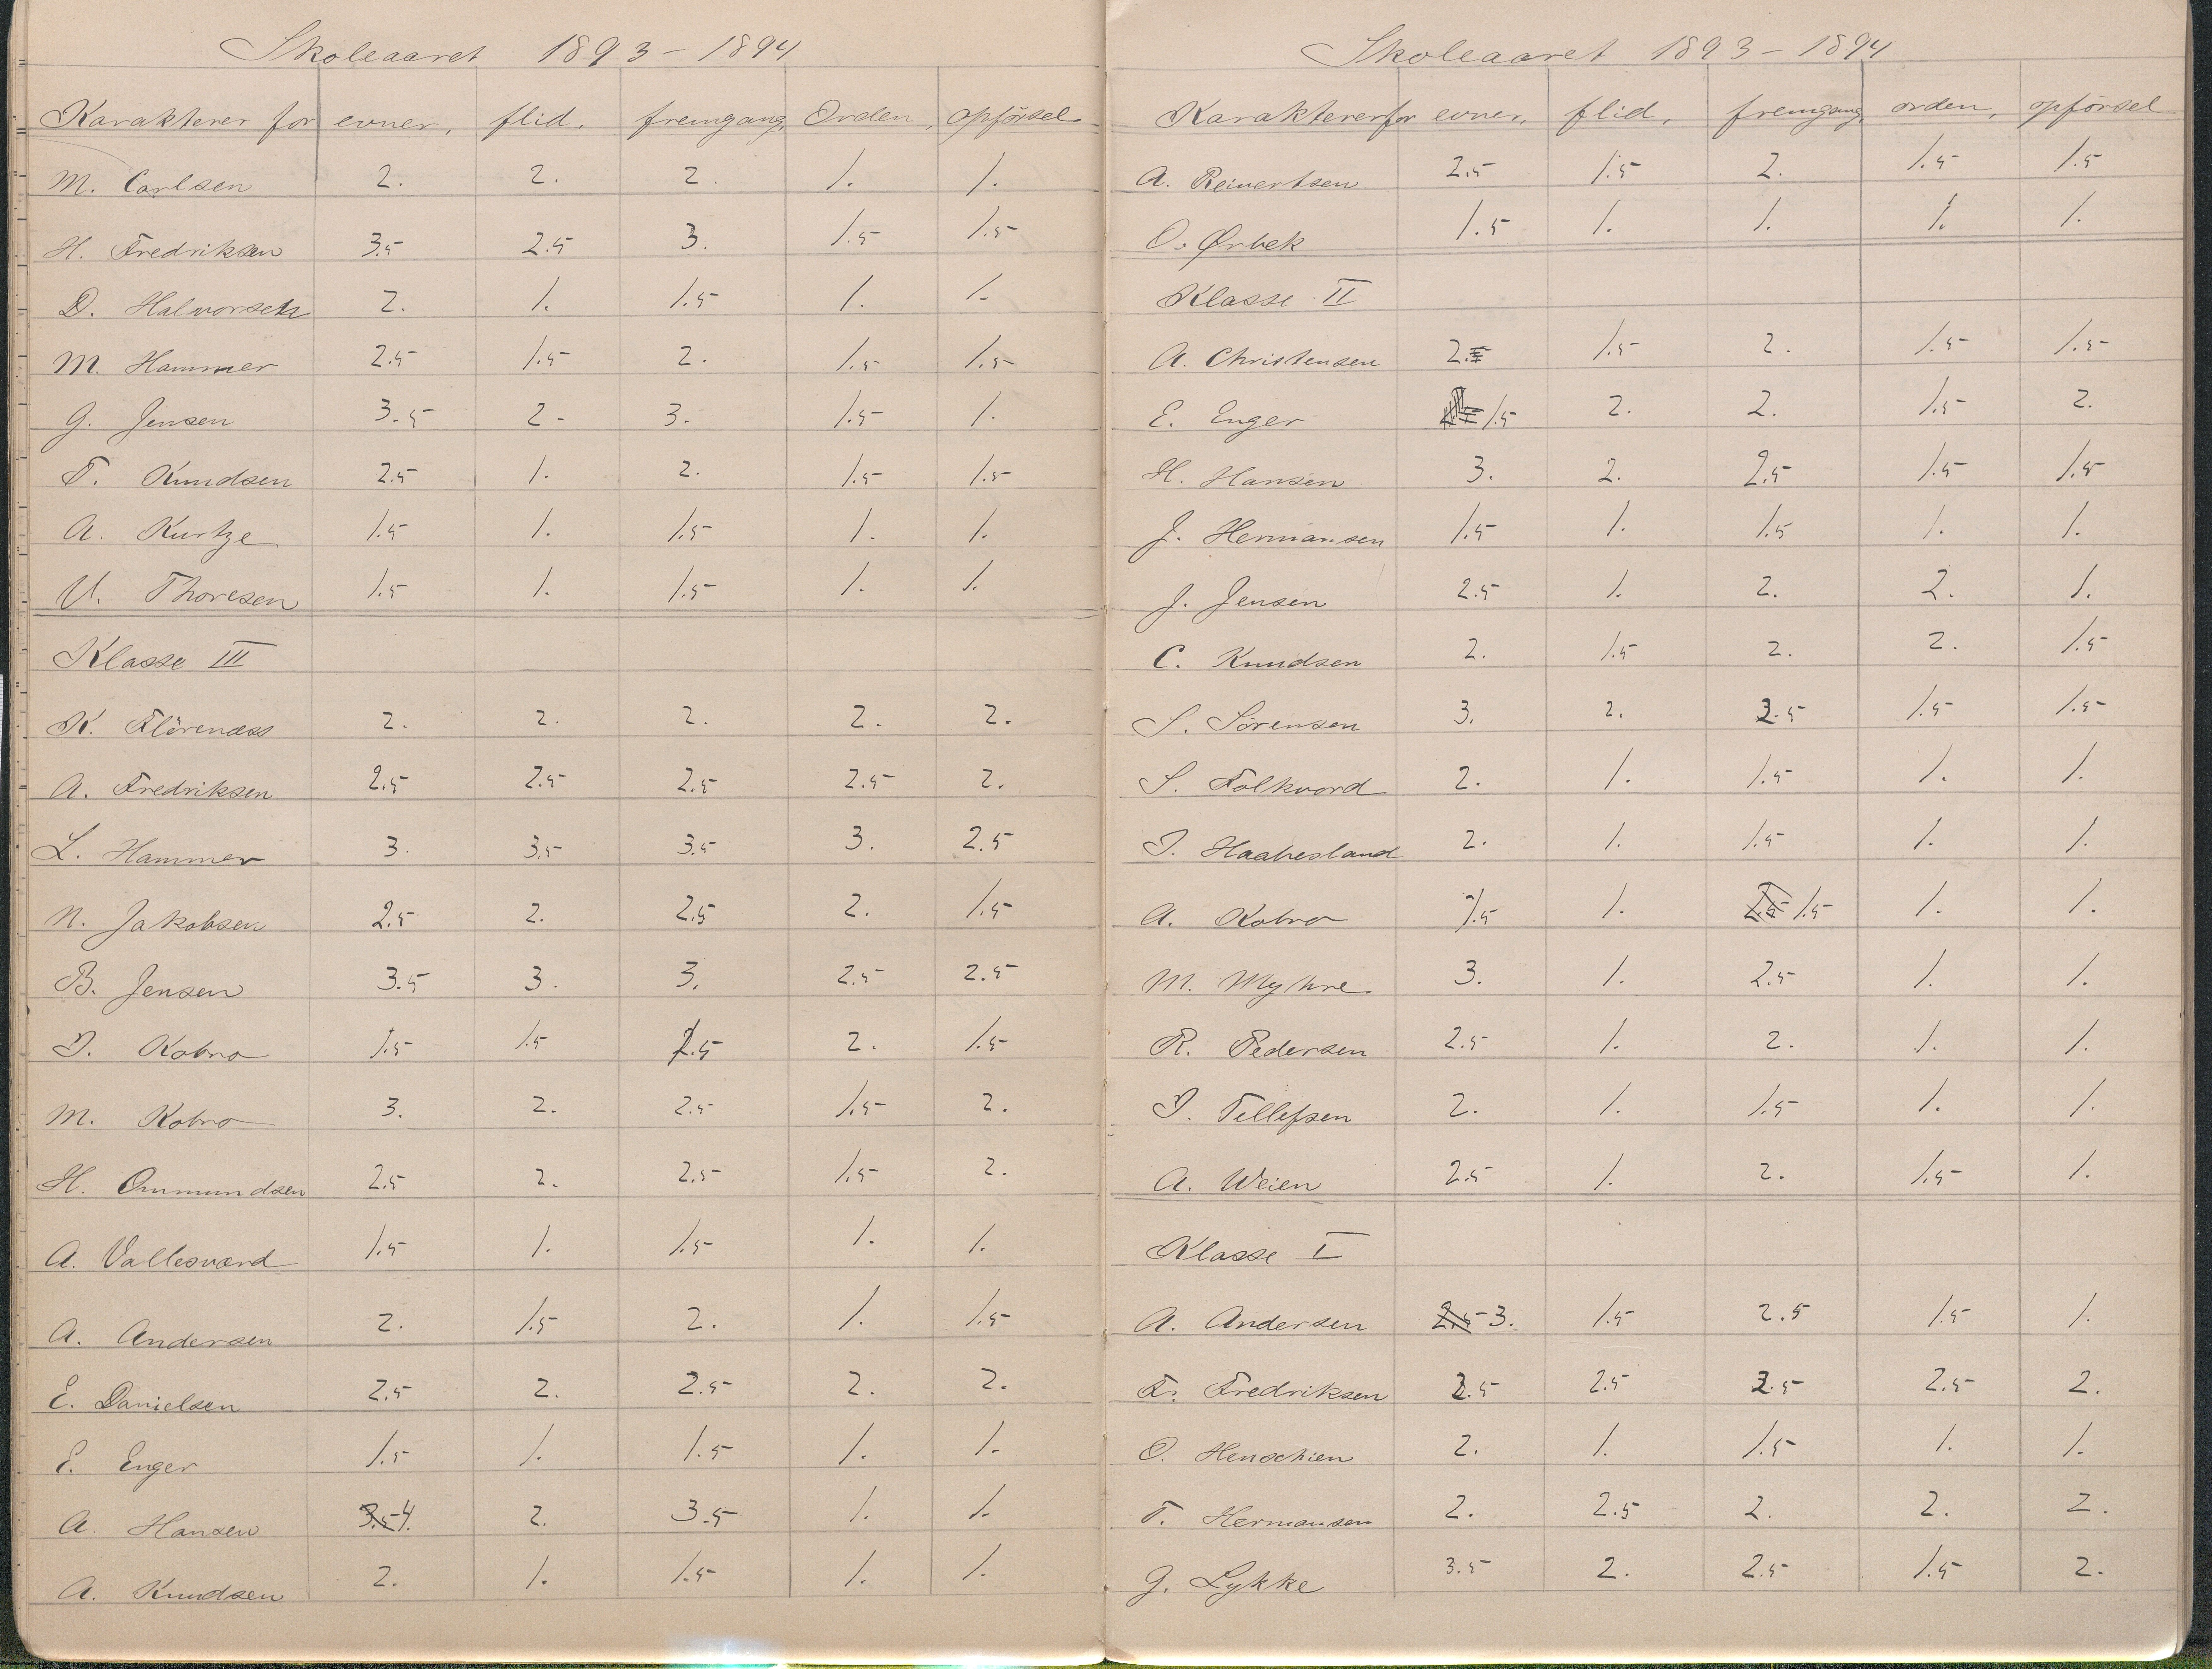 Skoleaaret 1893-1894
Karakterer for evner, flid, fremgang, Orden, opförsel
M. Carlsen 2. 2. 2. 1. 1.
H. Fredriksen 3.5 2.5 3. 1.5 1.5
D. Halvorsen 2. 1. 1.5 1. 1.
M. Hammer 2.5 1.5 2. 1.5 1.5
G. Jensen 3.5 2- 3. 1.5 1.
T. Knudsen 2.5 1. 2. 1.5 1.5
A. Kurtze 1.5 1. 1.5 1. 1.
U. Thoresen 1.5 1. 1.5 1. 1.
Klasse III
K. Flörenæss 2. 2. 2. 2. 2.
A. Fredriksen 2.5 2.5 2.5 2.5 2.
L. Hammer 3. 3.5 3.5 3. 2.5
N. Jakobsen 2.5 2. 2.5 2. 1.5
B. Jensen 3.5 3. 3. 2.5 2.5
J. Kobro 1.5 1.5 2. 1.5
M. Kobro 3. 2. 2.5 1.5 2.
H. Ommundsen 2.5 2. 2.5 1.5 2.
A. Vallesværd 1.5 1. 1.5 1. 1.
A. Andersen 2. 1.5 2. 1. 1.5
E. Danielsen 2.5 2. 2.5 2. 2.
E. Enger 1.5 1. 1.5 1. 1.
A. Hansen 3.5 4. 2. 3.5 1. 1.
A. Knudsen 2. 1. 1.5 1. 1.
Skoleaaret 1893-1894
Karakterer for evner, flid, fremgang, orden, opförsel
A. Reinertsen 2.5 1.5 2. 1.5 1.5
O. Ørbek 1.5 1. 1. 1. 1.
Klasse II
A. Christensen 2. 1.5 2. 1.5 1.5
E. Enger 1.5 2. 2. 1.5 2.
H. Hansen 3. 2. 2.5 1.5 1.5
J. Hermansen 1.5 1. 1.5 1. 1.
J. Jensen 2.5 1. 2. 2. 1.
C. Knudsen 2. 1.5 2. 2. 1.5
S. Sörensen 3. 2. 1.5 1.5
S. Folkvord 2. 1. 1.5 1. 1.
J. Haabesland 2. 1. 1.5 1. 1.
A. Kobro 1.5 1. 2.5 1.5 1. 1.
M. Myhre 3. 1. 2.5 1. 1.
R. Pedersen 2.5 1. 2. 1. 1.
J. Tellefsen 2. 1. 1.5 1. 1.
A. Weien 2.5 1. 2. 1.5 1.
Klasse I
A. Andersen 2.5 3. 1.5 2.5 1.5 1.
F. Fredriksen 2.5 2.5 2.
O. Henschien 2. 1. 1.5 1. 1.
T. Hermansen 2. 2.5 2. 2. 2.
G. Lykke 3.5 2. 2.5 1.5 2.